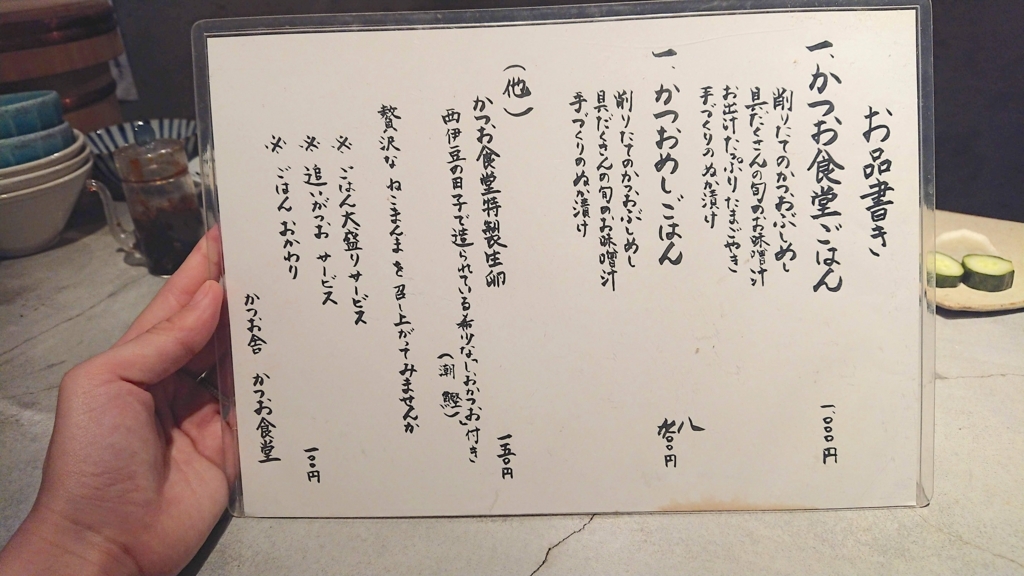 お品書き
一、かつお食堂ごはん 一、〇〇〇円
削りたてのかつおぶしめし
具だくさんの旬のお味噌汁
お出汁たっぷりたまごやき
手づくりのぬか漬け
一、かつおめしごはん 八〇〇円
削りたてのかつおぶしめし
具だくさんの旬のお味噌汁
手づくりのぬか漬け
(他)
かつお食堂特製生卵 一五〇円
西伊豆の田子で造られている希少な「しおかつお」付き
(潮 鰹)
贅沢な ねこまんまを召し上がってみませんか
※ ごはん大盛りサービス
※ 追いがつお サービス
※ ごはんおかわり 一〇〇円
かつお舎 かつお食堂